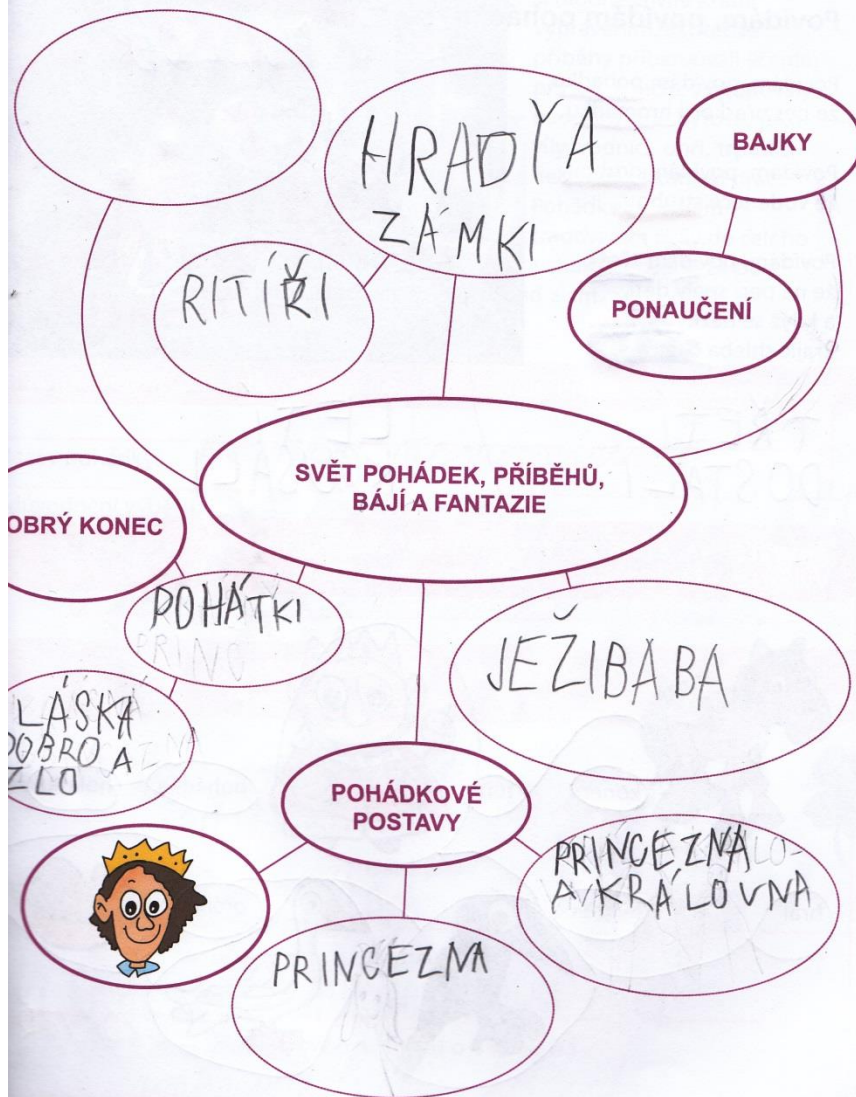 HRADY A
ZÁMKI
BAJKY
RITÍŘI
PONAUČENÍ
SVĚT POHÁDEK, PŘÍBĚHŮ,
BÁJÍ A FANTAZIE
OBRÝ KONEC
POHÁTKI
JEŽIBABA
LÁSKA
DOBRO A
ZLO
POHÁDKOVÉ
POSTAVY
PRINCEZNA
A KRÁLOVNA
PRINCEZNA